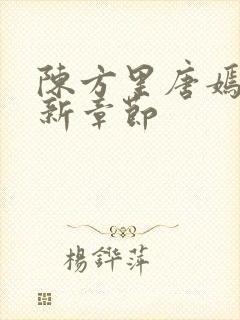 陳方罡唐嫣
新章節
楊鏵萍